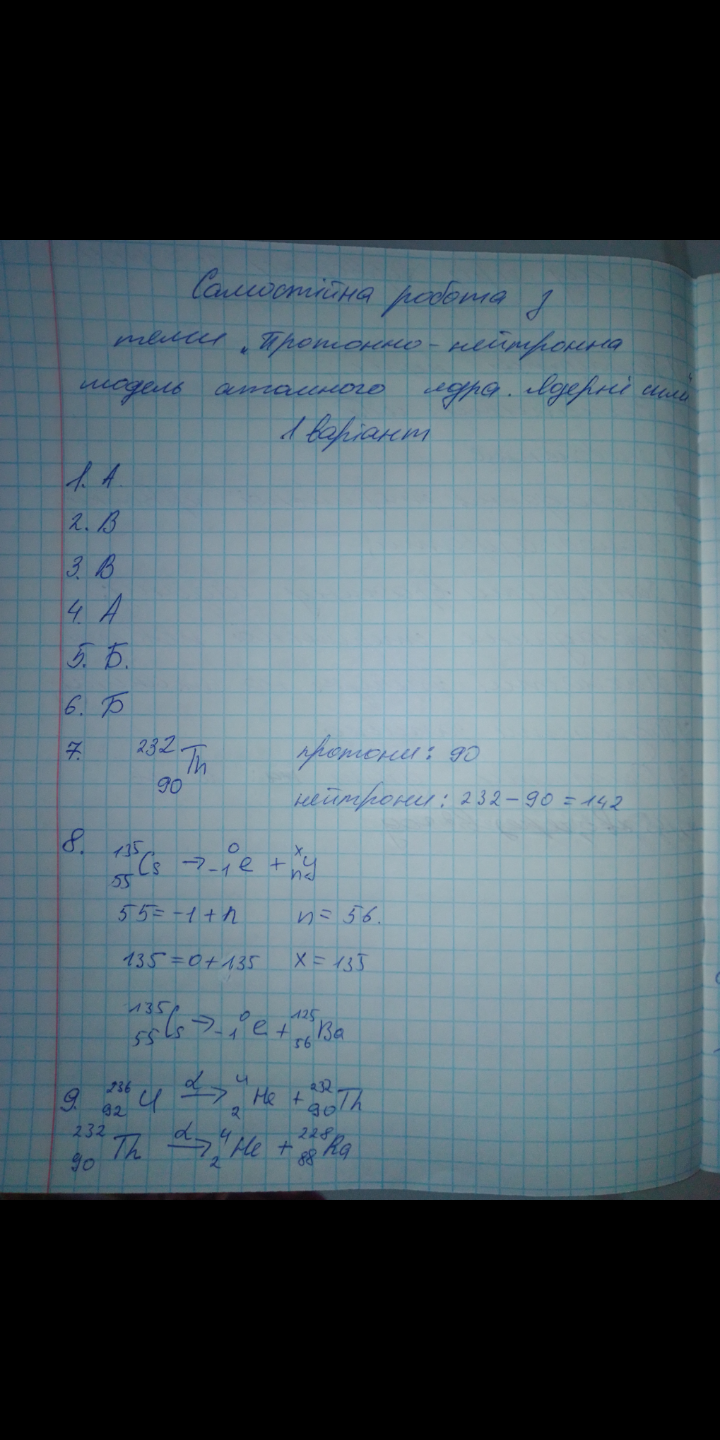 Самостійна робота з
теми „Протонно-нейтронна
модель атомного ядра. Ядерні сили
1 варіант
1. А
2. В
3. В
4. А
5. Б.
6. Б
7. ²³²₉₀Th протони: 90
нейтрони: 232-90=142
8. ¹³⁵₅₅Cs → ⁰₋₁e + ˣₙy
55=-1+n n=56.
135=0+135 x=135
¹³⁵₅₅Cs → ⁰₋₁e + ¹²⁵₅₆Ba
9. ²³⁶₉₂U α→ ⁴₂He + ²³²₉₀Th
²³²₉₀Th α→ ⁴₂He + ²²⁸₈₈Ra